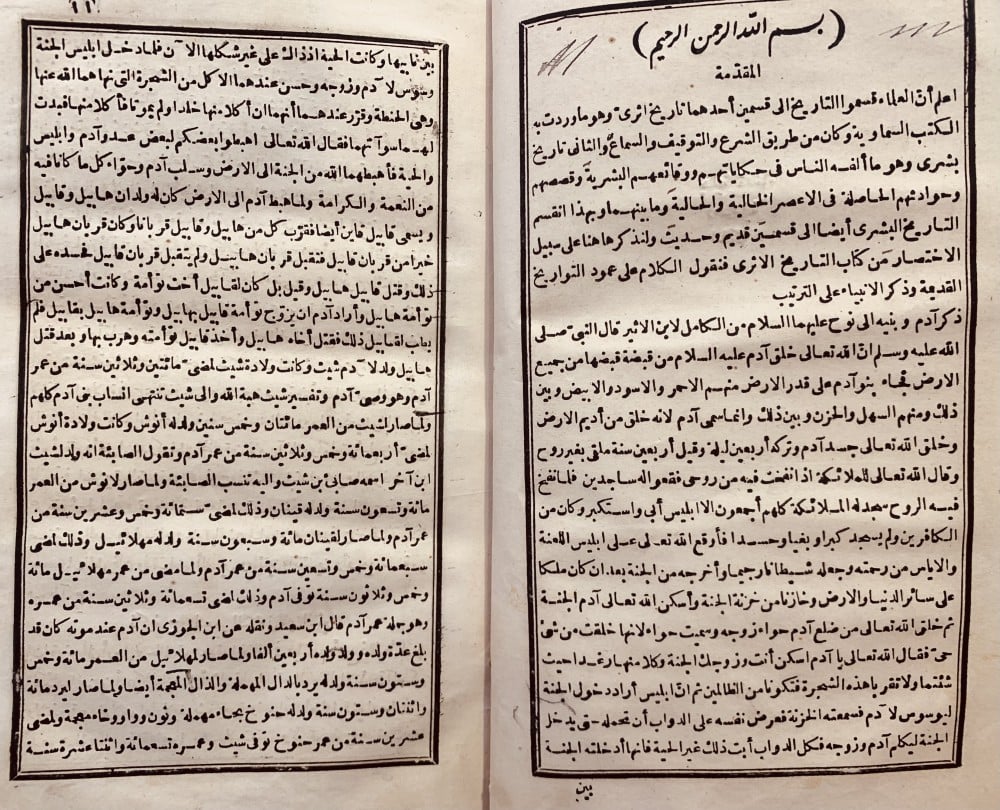 (بسم الله الرحمن الرحيم)
المقدمة
اعلم أن العلماء قسموا التاريخ الى قسمين أحدهما تاريخ اثرى وهو ما وردت به
الكتب السماوية وكان من طريق الشرع والتوقيف والسماع والثانى تاريخ
بشرى وهو ما ألفه الناس فى حكاياتهم ووقائعهم البشرية وقصصهم
وحوادثهم الحاصلة فى الاعصر الخالية والحالية وما بينهما وبهذا انقسم
التاريخ البشرى أيضا الى قسمين قديم وحديث ولنذكرها هنا على سبيل
الاختصار من كتاب التاريخ الاثرى فنقول الكلام على عمود التواريخ
القديمة وذكر الانبياء على الترتيب
ذكر آدم وبنيه الى نوح عليهما السلام من الكامل لابن الاثير قال النبى صلى
الله عليه وسلم ان الله تعالى خلق آدم عليه السلام من قبضة قبضها من جميع
الارض فجاء بنو آدم على قدر الارض منهم الاحمر والاسود والابيض وبين
ذلك ومنهم السهل والحزن وبين ذلك وانما سمى آدم لانه خلق من أديم الارض
وخلق الله تعالى جسد آدم وتركه أربعين ليلة وقيل أربعين سنة ملقى بغير روح
وقال الله تعالى للملائكة اذا نفخت فيه من روحى فقعوا له ساجدين فلما نفخ
فيه الروح سجد له الملائكة كلهم أجمعون الا ابليس أبى واستكبر وكان من
الكافرين ولم يسجد كبرا وبغيا وحسدا فأوقع الله تعالى على ابليس اللعنة
والاياس من رحمته وجعله شيطانا رجيما وأخرجه من الجنة بعد ان كان ملكا
على سائر الدنيا والارض وخازنا من خزنة الجنة وأسكن الله تعالى آدم الجنة
ثم خلق الله تعالى من ضلع آدم حواء زوجه وسميت حواء لانها خلقت من شئ
حى فقال الله تعالى يا آدم اسكن أنت وزوجك الجنة وكلا منها رغدا حيث
شئتما ولا تقربا هذه الشجرة فتكونا من الظالمين ثم ان ابليس أراد دخول الجنة
ليوسوس لآدم فمنعته الخزنة فعرض نفسه على الدواب أن تحمله حتى يدخل
الجنة ليكلم آدم وزوجه فكل الدواب أبت ذلك غير الحية فانها أدخلته الجنة
بين
١١
بين نابيها وكانت الحية اذ ذاك على غير شكلها الآن فلما دخل ابليس الجنة
وسوس لآدم وزوجه وحسن عندهما الاكل من الشجرة التى نهاهما الله عنها
وهى الحنطة وقرر عندهما أنهما ان أكلا منها خلدا ولم يموتا فأكلا منها فبدت
لهما سوآتهما فقال الله تعالى اهبطوا بعضكم لبعض عدو آدم وابليس
والحية فأهبطهما الله من الجنة الى الارض وسلب آدم وحواء كل ما كانا فيه
من النعمة والكرامة ولما هبط آدم الى الارض كان له ولدان هابيل وقابيل
ويسمى قابيل قاين أيضا فقرب كل من هابيل وقابيل قربانا وكان قربان هابيل
خيرا من قربان قابيل فتقبل قربان هابيل ولم يتقبل قربان قابيل فحسده على
ذلك وقتل قابيل هابيل وقيل بل كان لقابيل أخت توأمة وكانت أحسن من
توأمة هابيل وأراد آدم ان يزوج توأمة قابيل بهابيل وتوأمة هابيل بقابيل فلم
يطب لقابيل ذلك فقتل أخاه هابيل وأخذ قابيل توأمته وهرب بها وبعد قتل
هابيل ولد لآدم شيث وكانت ولادة شيث لمضى مائتين وثلاثين سنة من عمر
آدم وهو وصى آدم وتفسير شيث هبة الله والى شيث تنتهى انساب بنى آدم كلهم
ولما صار لشيث من العمر مائتان وخمس سنين ولد له أنوش وكانت ولادة أنوش
لمضى أربعمائة وخمس وثلاثين سنة من عمر آدم وتقول الصابئة انه ولد لشيث
ابن آخر اسمه صابئ بن شيث واليه تنسب الصابئة ولما صار لانوش من العمر
مائة وتسعون سنة ولد له قينان وذلك لمضى ستمائة وخمس وعشرين سنة من
عمر آدم ولما صار لقينان مائة وسبعون سنة ولد له مهلائيل وذلك لمضى
سبعمائة وخمس وتسعين سنة من عمر آدم ولما مضى من عمر مهلائيل مائة
وخمس وثلاثون سنة توفى آدم وذلك لمضى تسعمائة وثلاثين سنة من عمره
وهو جملة عمر آدم قال ابن سعيد ونقله عن ابن الجوزى ان آدم عند موته كان قد
بلغ عدة ولده وولد ولده أربعين ألفا ولما صار لمهلائيل من العمر مائة وخمس
وستون سنة ولد له يرد بالدال المهملة والذال المعجمة أيضا ولما صار ليرد مائة
واثنتان وستون سنة ولد له حنوخ بحاء مهملة ونون وواو وخاء معجمة ولمضى
عشرين سنة من عمر حنوخ توفى شيث وعمره تسعمائة واثنتا عشرة سنة